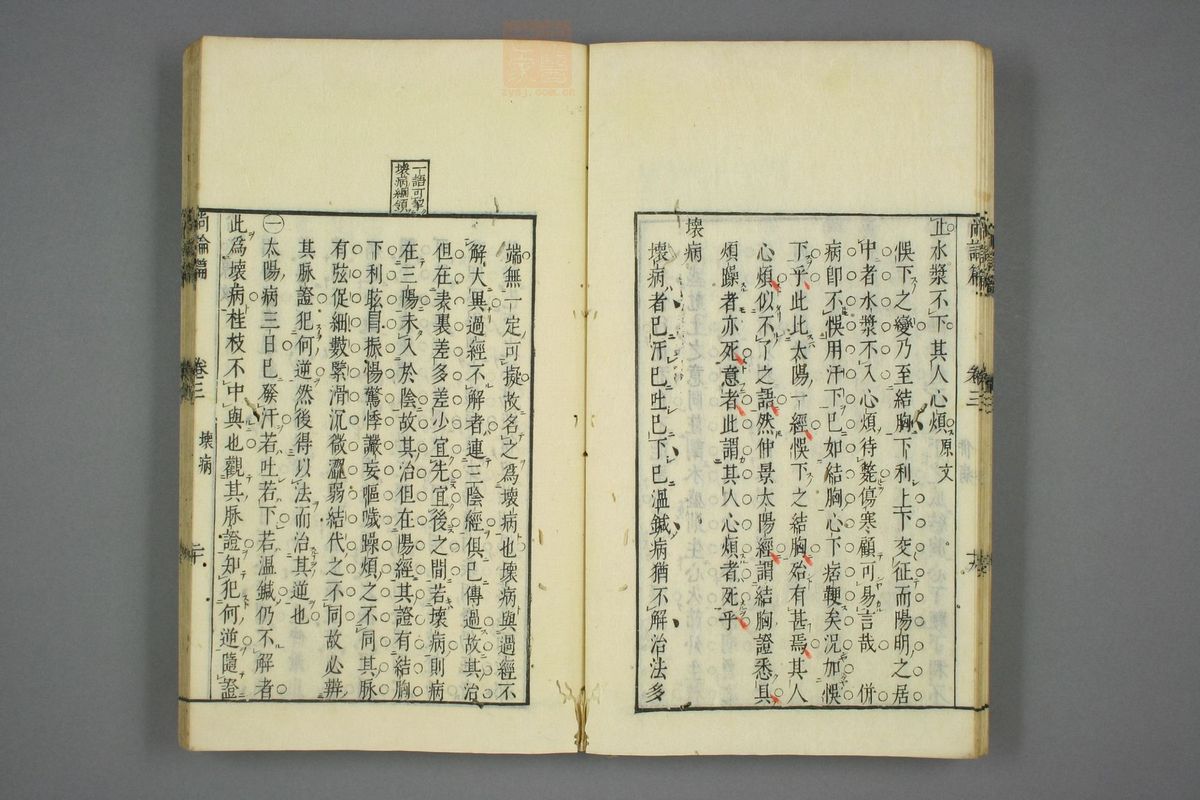 止水漿不下其人心煩 原文
悞下之變乃至結胸下利上下交征而陽明之居
中者水漿不入心煩待斃傷寒顧可易言哉 併
病即不悞用汗下已如結胸心下痞鞕矣況加悞
下乎此比太陽一經悞下之結胸殆有甚焉其人
心煩似不了之語然仲景太陽經謂結胸證悉具
煩躁者亦死意者此謂其人心煩者死乎
壞病
壞病者已汗已吐已下已溫鍼病猶不解治法多
尚論篇 卷三
端無一定可擬故名之為壞病也壞病與過經不
解大異過經不解者連三陰經俱已傳過故其治
但在表裏差多差少宜先宜後之間若壞病則病
在三陽未入於陰故其治但在陽經其證有結胸
下利眩冒振惕驚悸讝妄嘔噦躁煩之不同其脉
有弦促細數緊滑沉微澀弱結代之不同故必辨
其脉證犯何逆然後得以法而治其逆也
㊀太陽病三日已發汗若吐若下若溫鍼仍不解者
此爲壞病桂枝不中與也觀其脉證知犯何逆隨證
一語可挈
壞病綱領
尚論篇 卷三 壞病 二十
醫家
zysj.com.cn